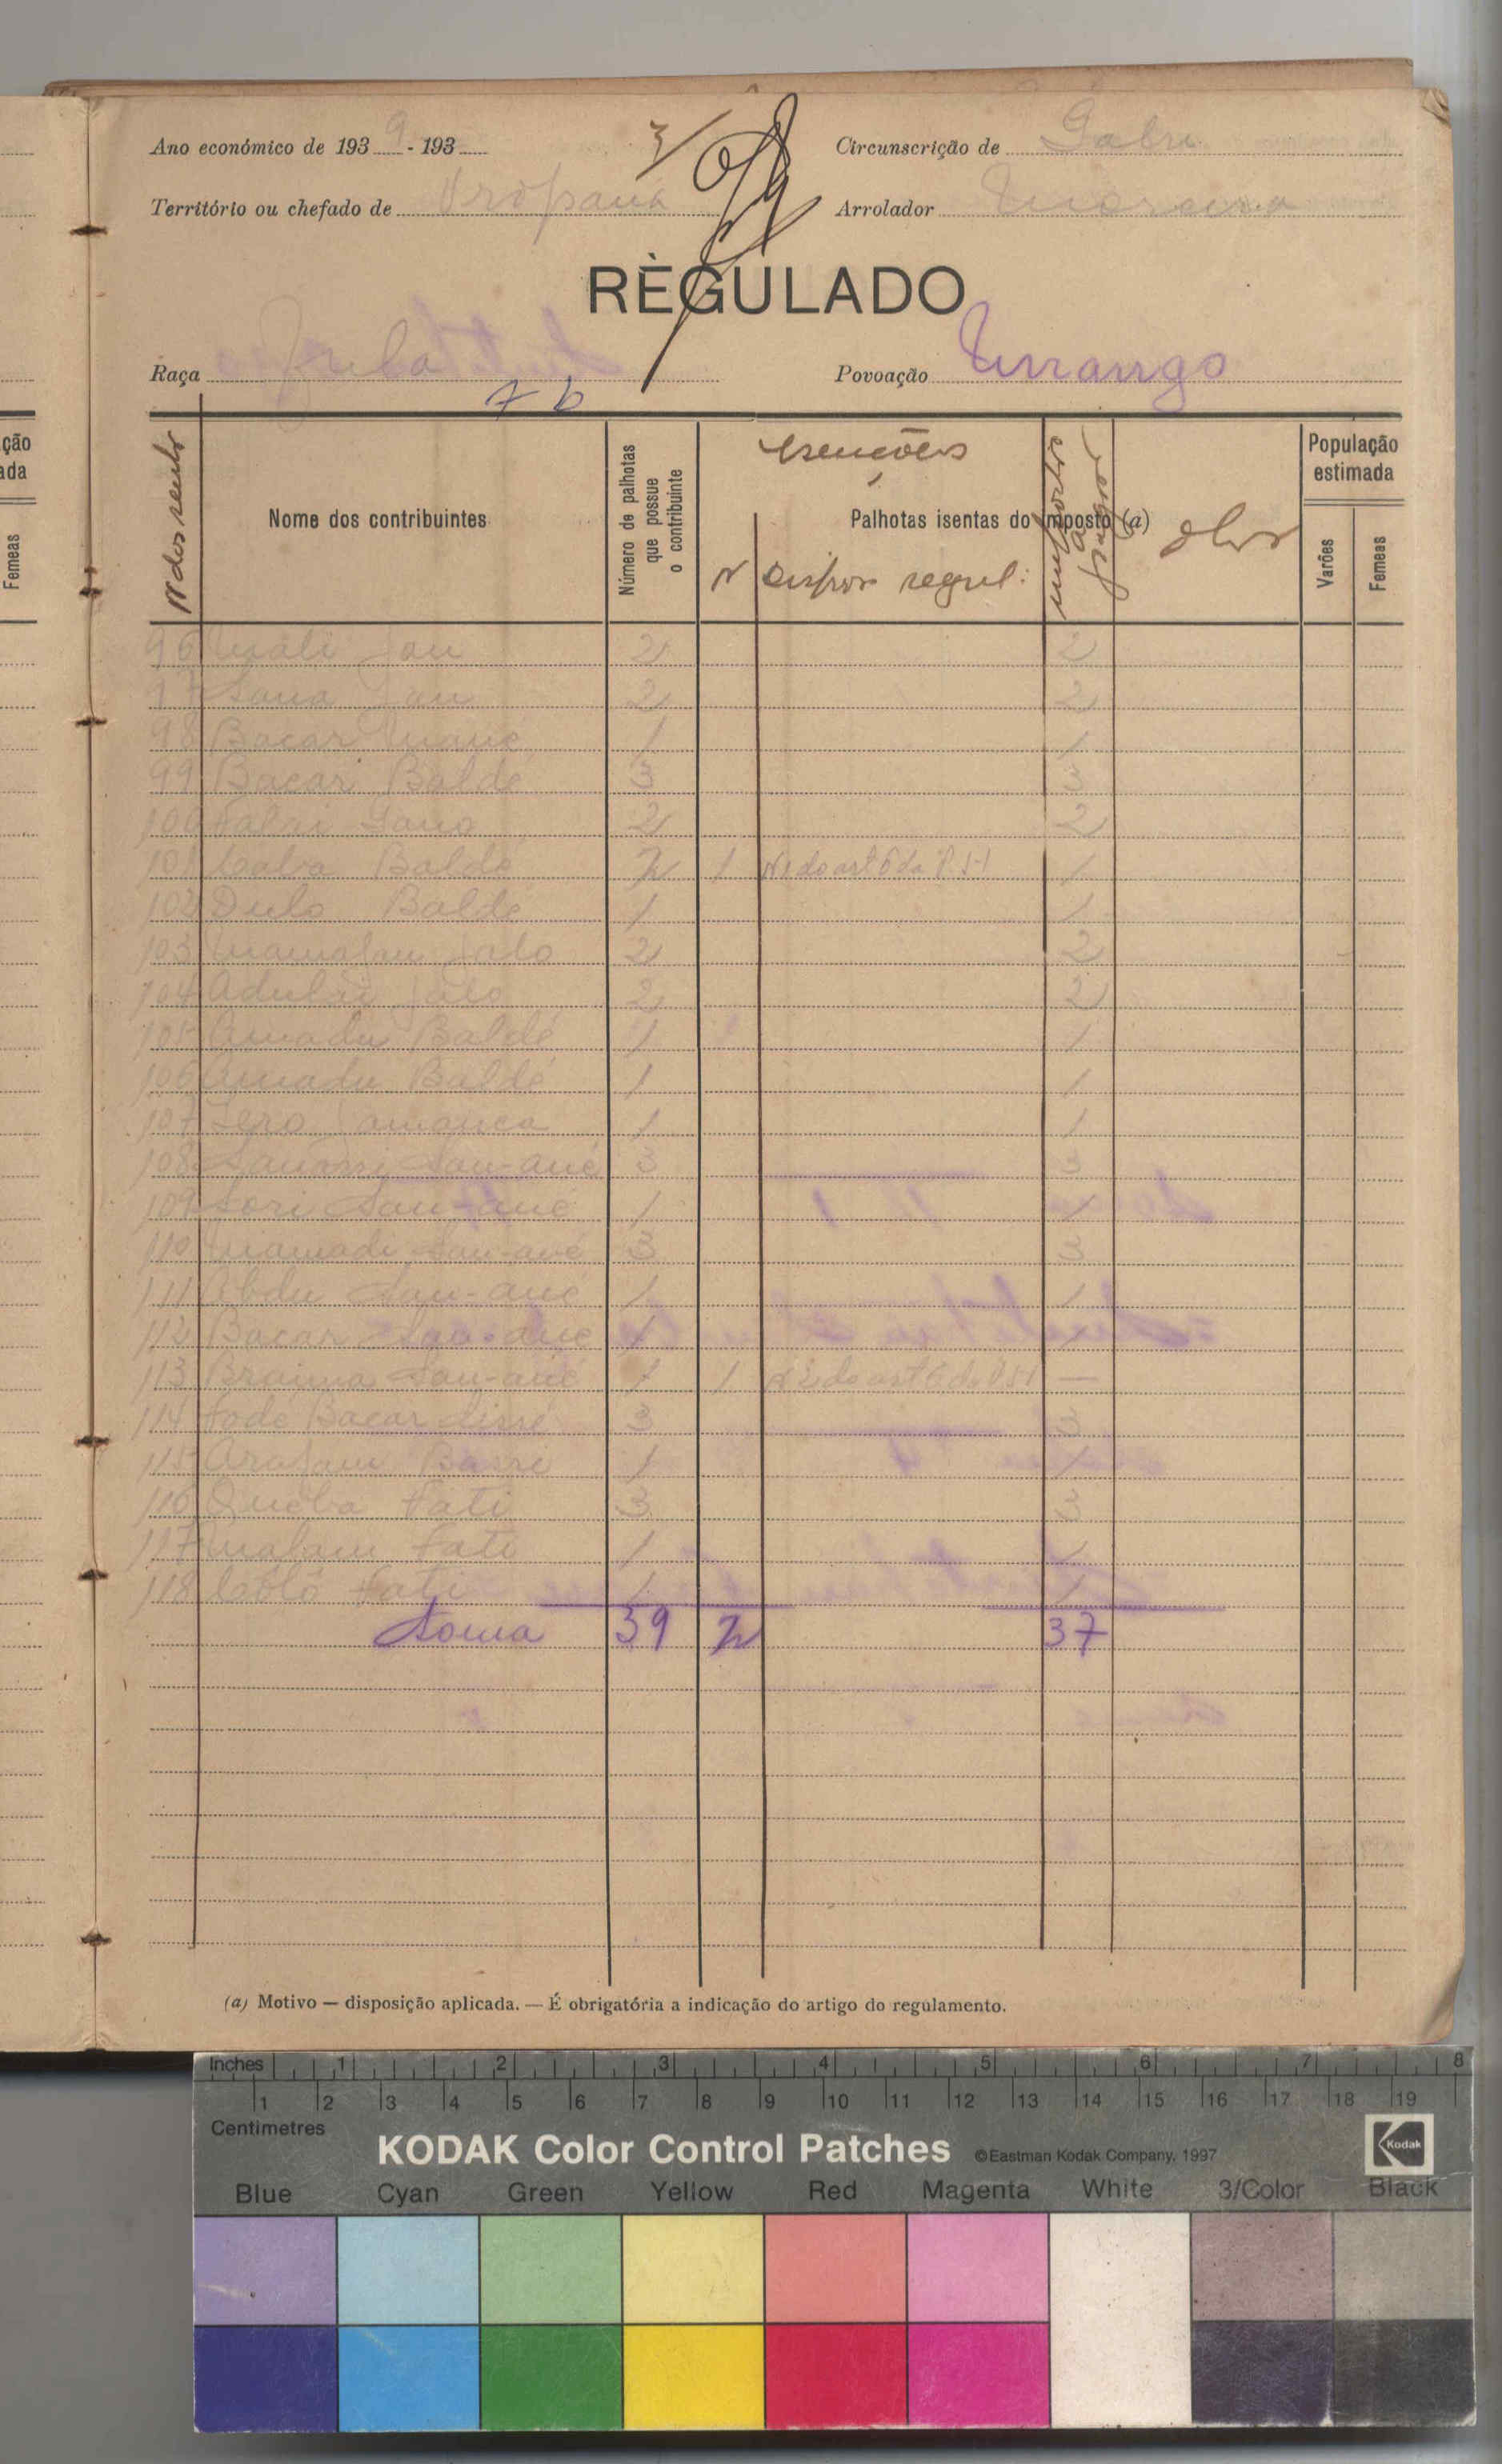 ção
ada
Femeas
Ano económico de 193 9 - 193
3/
Circunscrição de Gabu
Território ou chefado de Propana
Arrolador Moreira
RÈGULADO
Raça
Povoação
7 b
Nome dos contribuintes
Número de palhotas que possue o contribuinte
Isenções
Palhotas isentas do imposto (a)
N Dispos regul:
Obs
População estimada
Varões
Femeas
96 Mali Jau 2 2
97 Sana Jau 2 2
98 Bacar Mané 1 1
99 Bacar Baldé 3 3
100 Sabri Gano 2 2
101 Baldé 2 1 1
102 Dulo Baldé 1 1
103 Mamafan Jalo 2 2
104 Jalo 2 2
105 Amadu Baldé 1 1
106 Amadu Baldé 1 1
107 Jero Jamanca 1 1
108 San-ané 3 3
109 Sori San-ané 1 1
110 Mamadi San-ané 3 3
111 Abdu San-ané 1 1
112 Bacar San-ané 1 1
113 Braima San-ané 1 1 —
114 Fodé Bacar Sissé 3 3
115 Arafam 1 1
116 Québa Fati 3 3
117 Malam Fati 1 1
118 Coló Fati 1 1
Soma 39 2 37
(a) Motivo — disposição aplicada. — É obrigatória a indicação do artigo do regulamento.
Inches 1 2 3 4 5 6 7 8
1 2 3 4 5 6 7 8 9 10 11 12 13 14 15 16 17 18 19
Centimetres
KODAK Color Control Patches ©Eastman Kodak Company, 1997 Kodak
Blue Cyan Green Yellow Red Magenta White 3/Color Black